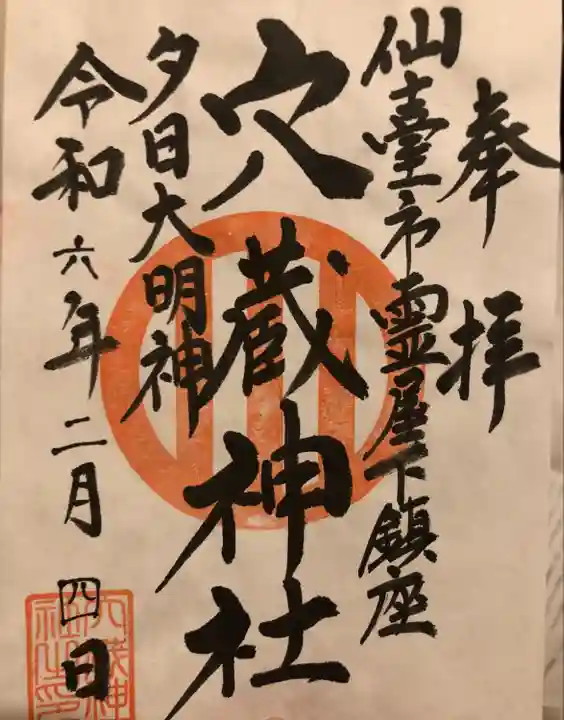 奉拝
仙臺市霊屋下鎮座
穴蔵神社
夕日大明神
令和六年二月四日
穴蔵神
社之印